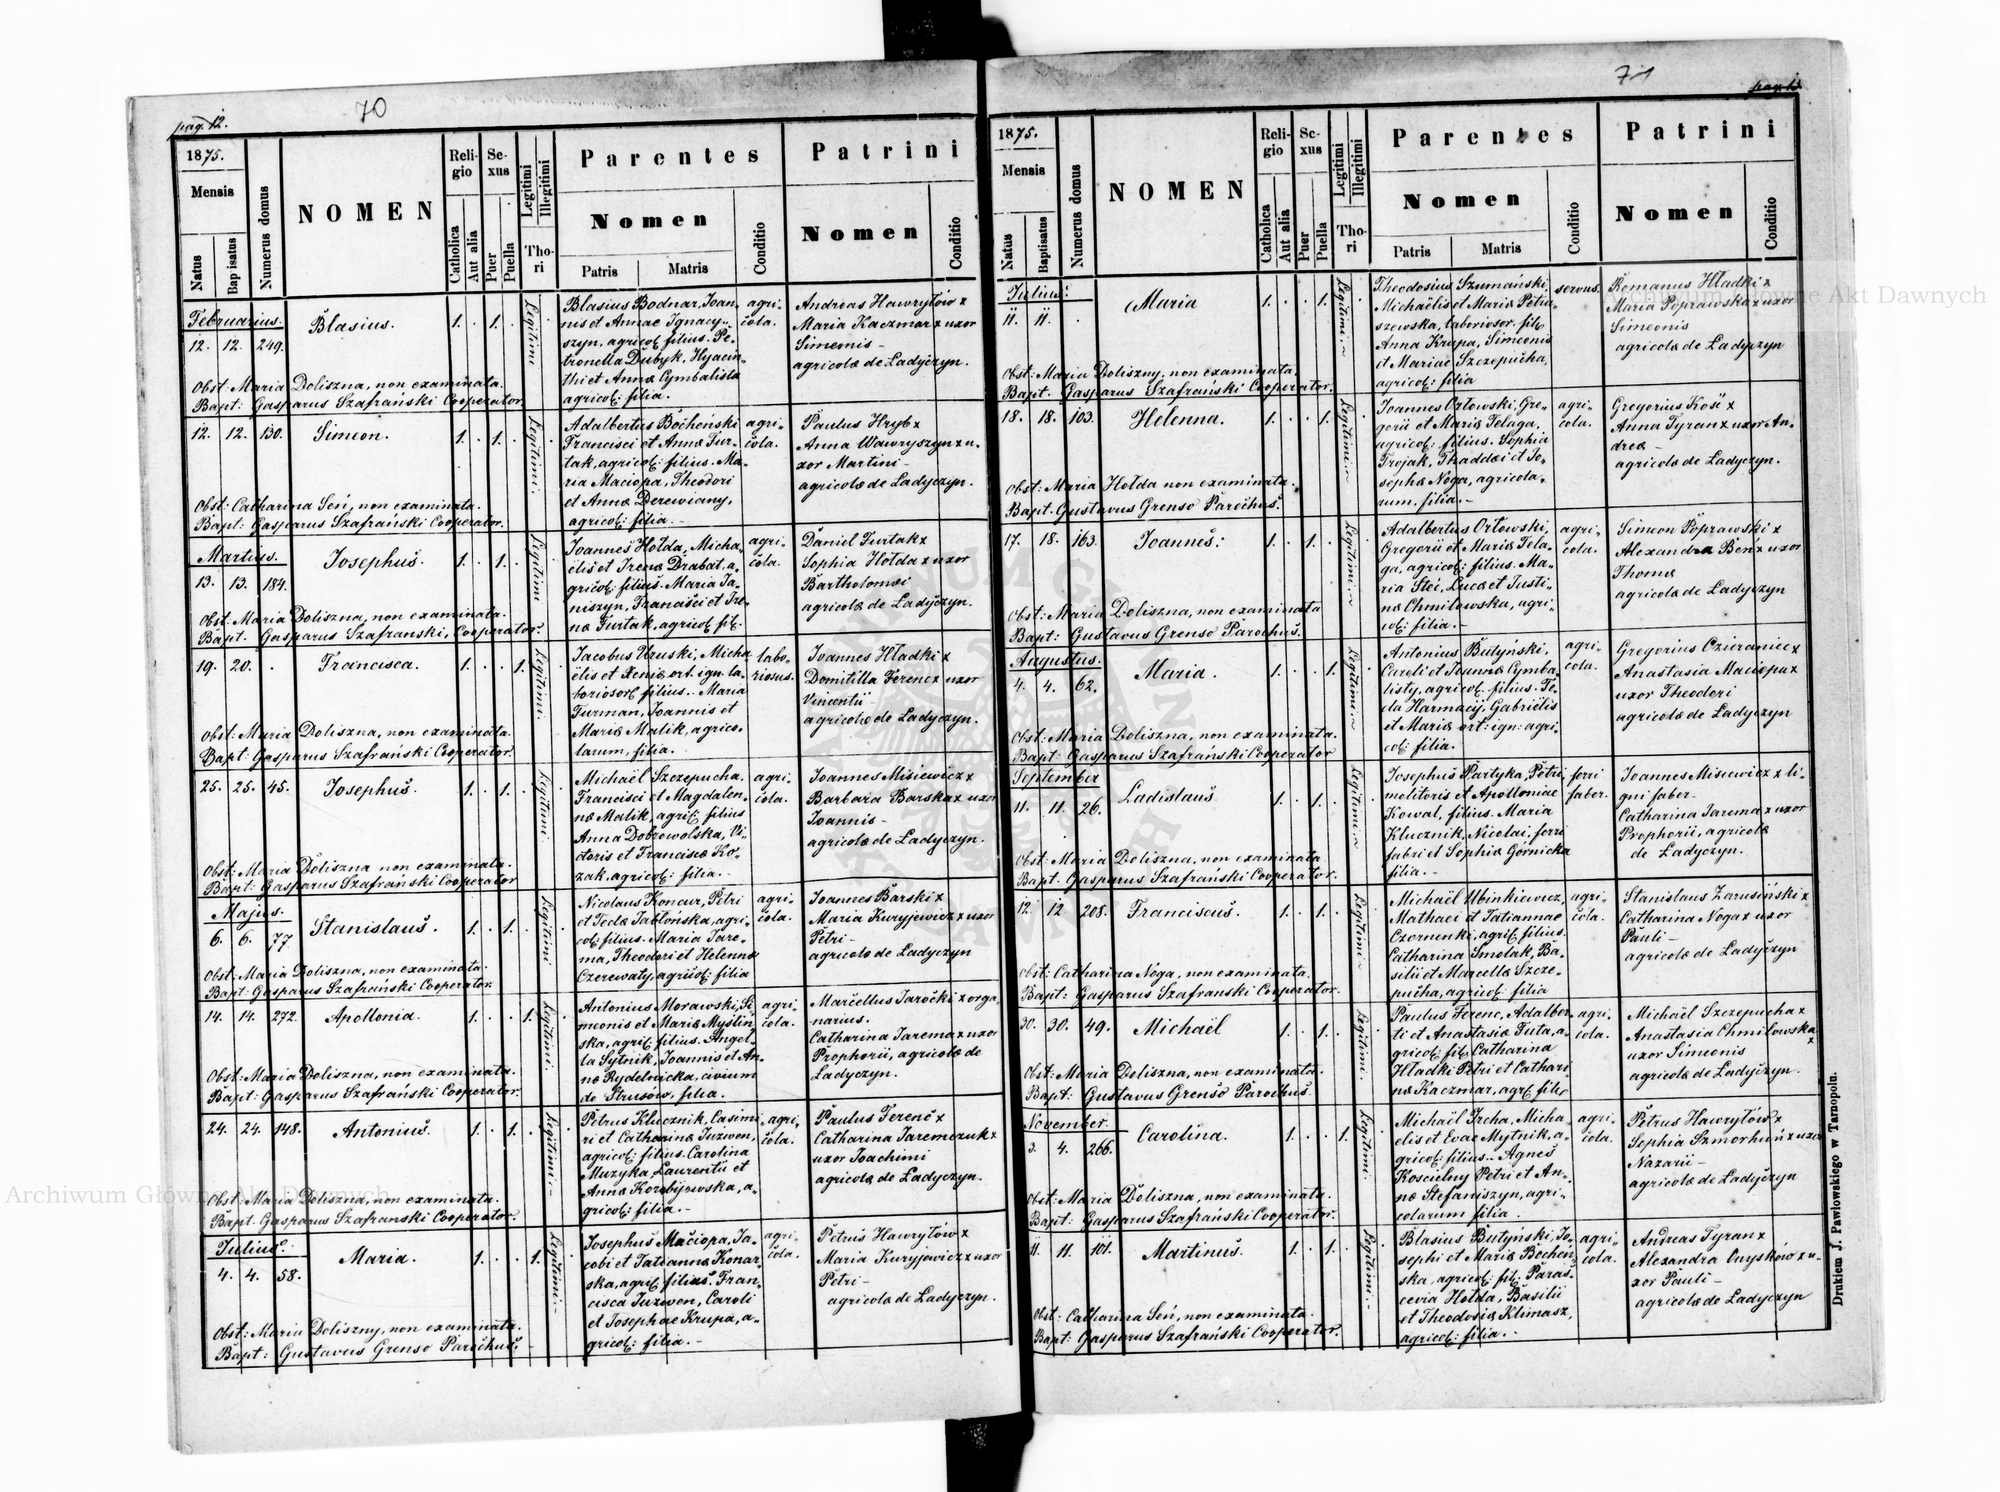 pag. 12.
70
1875.
Mensis
Natus
Bap isatus
Numerus domus
NOMEN
Reli-
gio
Catholica
Aut alia
Se-
xus
Puer
Puella
Legitimi
Illegitimi
Tho-
ri
Parentes
Nomen
Patris
Matris
Conditio
Patrini
Nomen
Conditio
Februarius.
12. 12. 249.
Blasius.
1. . 1. .
Legitimi
Blasius Bodnar, Joan-
nis et Annae Ignacy-
szyn, agricol: filius. Pe-
tronella Dubyk, Hyacin-
thi et Annæ Cymbalista
agricol: filia.
agri-
cola.
Andreas Hawrytów x
Maria Kaczmar x uxor
Simemis -
agricolæ de Ladyczyn.
Obst: Maria Doliszna, non examinata.
Bapt: Gasparus Szafrański Cooperator.
12. 12. 130.
Simeon.
1. . 1. .
Legitimi.
Adalbertus Bocheński
Francisci et Annæ Fur-
tak, agricol: filius. Ma-
ria Maciopa, Theodori
et Annæ Derewiany,
agricol: filia. -
agri-
cola.
Paulus Hryb x
Anna Wawryszyn x u-
xor Martini -
agricolæ de Ladyczyn.
Obst: Catharina Seń, non examinata.
Bapt: Gasparus Szafrański Cooperator.
Martius.
13. 13. 184.
Josephus.
1. . 1. .
Legitimi
Joannes Hołda, Micha-
elis et Irenæ Drabat, a-
gricol: filius. Maria Ja-
niszyn, Francisci et Ire-
næ Furtak, agricol: fil:
agri-
cola.
Daniel Furtak x
Sophia Hołda x uxor
Bartholomæi
agricolæ de Ladyczyn.
Obst: Maria Doliszna, non examinata.
Bapt: Gasparus Szafranski, Cooperator.
19. 20. .
Francisca.
1. . . 1.
Legitimi.
Jacobus Uruski, Micha
elis et Xeniæ ort. ign. la-
boriosor: filius. Maria
Furman, Joannis et
Mariæ Malik, agrico-
larum, filia.
labo-
riosus.
Joannes Hładki x
Domitilla Ferenc x uxor
Vincentii
agricolæ de Ladyczyn.
Obst: Maria Doliszna, non examinata.
Bapt: Gasparus Szafrański Cooperator.
25. 25. 45.
Josephus.
1. . 1. .
Legitimi.
Michaël Szczepucha,
Francisci et Magdalen-
næ Malik, agric: filius
Anna Dobrowolska, Vi-
ctoris et Franciscæ Ko-
zak, agricol: filia. -
agri-
cola.
Joannes Misiewicz x
Barbara Barska x uxor
Joannis -
agricolæ de Ladyczyn.
Obst: Maria Doliszna non examinata.
Bapt: Gasparus Szafrański Cooperator
Majus.
6. 6. 77
Stanislaus.
1. . 1. .
Legitimi
Nicolaus Koncur, Petri
et Teclæ Jabłońska, agri-
col: filius. Maria Jare-
ma, Theodori et Helennæ
Czerewaty, agricol: filia
agri-
cola.
Joannes Barski x
Maria Kuryjewicz x uxor
Petri -
agricolæ de Ladyczyn
Obst: Maria Doliszna, non examinata.
Bapt: Gasparus Szafrański Cooperator.
14. 14. 272.
Apollonia.
1. . . 1.
Legitimi.
Antonius Morawski, Si-
meonis et Mariæ Myślin-
ska, agric: filius. Angel-
la Sytnik, Joannis et An-
næ Rydelnicka, civium
de Strusów, filia.
agri-
cola.
Marcellus Jarocki x orga
narius.
Catharina Jarema x uxor
Prophorii, agricolæ de
Ladyczyn.
Obst: Maria Doliszna, non examinata.
Bapt: Gasparus Szafrański Cooperator.
24. 24. 148.
Antonius.
1. . 1. .
Legitimi. -
Petrus Klucznik, Casimi
ri et Catharinæ Juzwen,
agricol: filius. Carolina
Muzyka, Laurentii et
Annæ Korobijowska, a-
gricol: filia. -
agri-
cola.
Paulus Ferenc x
Catharina Jaremczuk x
uxor Joachimi
agricolæ de Ladyczyn.
Obst: Maria Doliszna, non examinata.
Bapt: Gasparus Szafranski Cooperator.
Julius.
4. 4. 58.
Maria.
1. . . 1.
Legitimi. -
Josephus Maciopa, Ja-
cobi et Tatiannæ Konar-
ska, agric: filius. Fran-
cisca Juzwen, Caroli
et Josephae Krupa, a-
gricol: filia. -
agri-
cola.
Petrus Hawrytów x
Maria Kuryjewicz x uxor
Petri -
agricolæ de Ladyczyn.
Obst: Maria Doliszny, non examinata.
Bapt: Gustavus Grenso Parochus. -
71
1875.
Mensis
Natus
Baptisatus
Numerus domus
NOMEN
Reli-
gio
Catholica
Aut alia
Se-
xus
Puer
Puella
Legitimi
Illegitimi
Tho-
ri
Parentes
Nomen
Patris
Matris
Conditio
Patrini
Nomen
Conditio
Julius.
11. 11. .
Maria
1. . . 1.
Legitimi. -
Theodosius Szumański,
Michaelis et Mariæ Petra-
szewska, laboriosor. fil:
Anna Krupa, Simeonis
et Mariae Szczepucha,
agricol: filia
servus.
Romanus Hładki x
Maria Poprawska x uxor
Simeonis
agricolæ de Ladyczyn
Obst: Maria Doliszny, non examinata.
Bapt: Gasparus Szafrański Cooperator.
18. 18. 103.
Helenna.
1. . . 1.
Legitimi. -
Joannes Orłowski, Gre-
gorii et Mariæ Felaga,
agricol: filius. Sophia
Trojak, Thaddæi et Jo-
sephæ Noga, agricola-
rum. filia. -
agri-
cola.
Gregorius Kość x
Anna Tyran x uxor An-
dreæ -
agricolæ de Ladyczyn.
Obst: Maria Hołda non examinata.
Bapt. Gustavus Grenso Parochus.
17. 18. 163.
Joannes.
1. . 1. .
Legitimi. -
Adalbertus Orłowski,
Gregorii et Mariæ Fela-
ga, agricol: filius. Ma-
ria Steć, Lucæ et Justi-
næ Chmilowska, agri-
col: filia. -
agri-
cola.
Simeon Poprawski x
Alexandra Beń x uxor
Thomæ
agricolæ de Ladyczyn
Obst: Maria Doliszna, non examinata
Bapt: Gustavus Grenso Parochus.
Augustus.
4. 4. 62.
Maria.
1. . . 1.
Legitimi. -
Antonius Butyński,
Caroli et Joannæ Cymba-
listy, agricol. filius. Te-
cla Harmacij, Gabriëlis
et Mariæ ort: ign: agri-
col: filia.
agri-
cola.
Gregorius Ozieraniec x
Anastasia Maciopa x
uxor Theodori
agricolæ de Ladyczyn
Obst: Maria Doliszna, non examinata.
Bapt: Gasparus Szafrański Cooperator
September
11. 11. 26.
Ladislaus
1. . 1. .
Legitimi. -
Josephus Partyka, Petri
molitoris et Apolloniae
Kowal, filius. Maria
Klucznik, Nicolai, ferri
fabri et Sophiæ Górnicka
filia. -
ferri
faber.
Joannes Misiewicz x li-
gni faber -
Catharina Jarema x uxor
Prophorii, agricolæ
de Ladyczyn.
Obst: Maria Doliszna, non examinata
Bapt. Gasparus Szafrański Cooperator.
12 12 208.
Franciscus.
1. . 1. .
Legitimi. -
Michaël Ubinkiewicz,
Mathaei et Tatiannae
Czornenki, agric: filius.
Catharina Smolak, Ba-
silii et Marcellæ Szcze-
pucha, agricol: filia
agri-
cola.
Stanislaus Zarusiński x
Catharina Noga x uxor
Pauli -
agricolæ de Ladyczyn
Obst: Catharina Noga, non examinata.
Bapt: Gasparus Szafranski Cooperator.
30. 30. 49.
Michaël
1. . 1. .
Legitimi.
Paulus Ferenc, Adalber-
ti et Anastasiæ Futa, a-
gricol: fil: Catharina
Hładki Petri et Cathari
næ Kaczmar, agr: fil:
agri-
cola.
Michaël Szczepucha x
Anastasia Chmilowska x
uxor Simeonis
agricolæ de Ladyczyn.
Obst: Maria Doliszna, non examinata.
Bapt: Gustavus Grenso Parochus.
November.
3. 4. 266.
Carolina.
1. . . 1.
Legitimi.
Michaël Ircha, Micha
elis et Evae Mytnik, a-
gricol: filius. - Agnes
Koscielny Petri et An-
næ Stefaniszyn, agri-
colarum filia.
agri-
cola.
Petrus Hawrytów x
Sophia Szmorhuń x uxor
Nazarii -
agricolæ de Ladyczyn
Obst: Maria Doliszna, non examinata.
Bapt: Gasparus Szafrański Cooperator.
11. 11. 101.
Martinus.
1. . 1. .
Legitimi. -
Blasius Butyński, Jo-
sephi et Mariæ Bocheń-
ska, agricol: fil: Paras-
cevia Hołda, Basilii
et Theodosiæ Klimasz,
agricol: filia. -
agri-
cola.
Andreas Tyran x
Alexandra Onysków x u-
xor Pauli -
agricolæ de Ladyczyn
Obst: Catharina Seń, non examinata.
Bapt: Gasparus Szafrański Cooperator.
Drukiem J. Pawłowskiego w Tarnopolu.
Archiwum Główne Akt Dawnych
Archiwum Główne Akt Dawnych